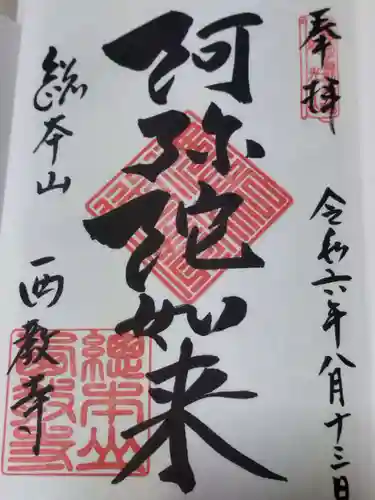 奉拝
令和六年八月十三日
阿弥陀如来
総本山
西教寺
總本山
西教寺